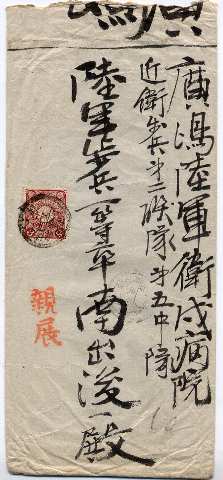 廣島
廣嶋陸軍衛戍病院
近衛歩兵第二聯隊第五中隊
陸軍歩兵一等卒南出浚一殿
親展